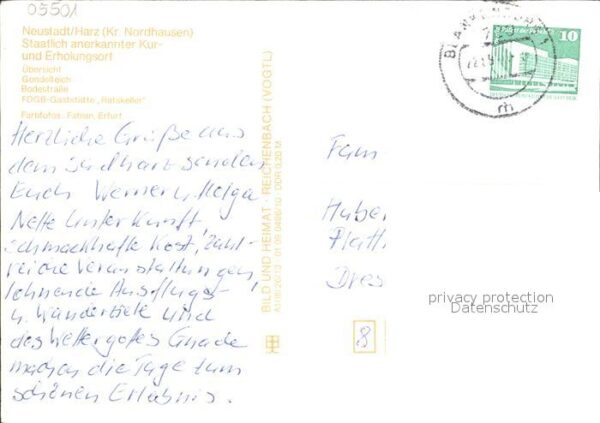 05501
Neustadt/Harz (Kr. Nordhausen)
Staatlich anerkannter Kur-
und Erholungsort
Übersicht
Gondelteich
Bodestraße
FDGB-Gaststätte „Ratskeller"
Farbfotos: Fabian, Erfurt
Herzliche Grüße aus
dem Südharz senden
Euch Werner u. Helga.
Nette Unterkunft,
schmackhafte Kost, zahl-
reiche Veranstaltungen,
lohnende Ausflugs-
u. Wanderziele und
des Wettergottes Gnade
machen die Tage zum
schönen Erlebnis.
BILD UND HEIMAT · REICHENBACH (VOGTL)
DDR 0,20 M
10
Fam
Huber
Platt
Dres
8
privacy protection
Datenschutz